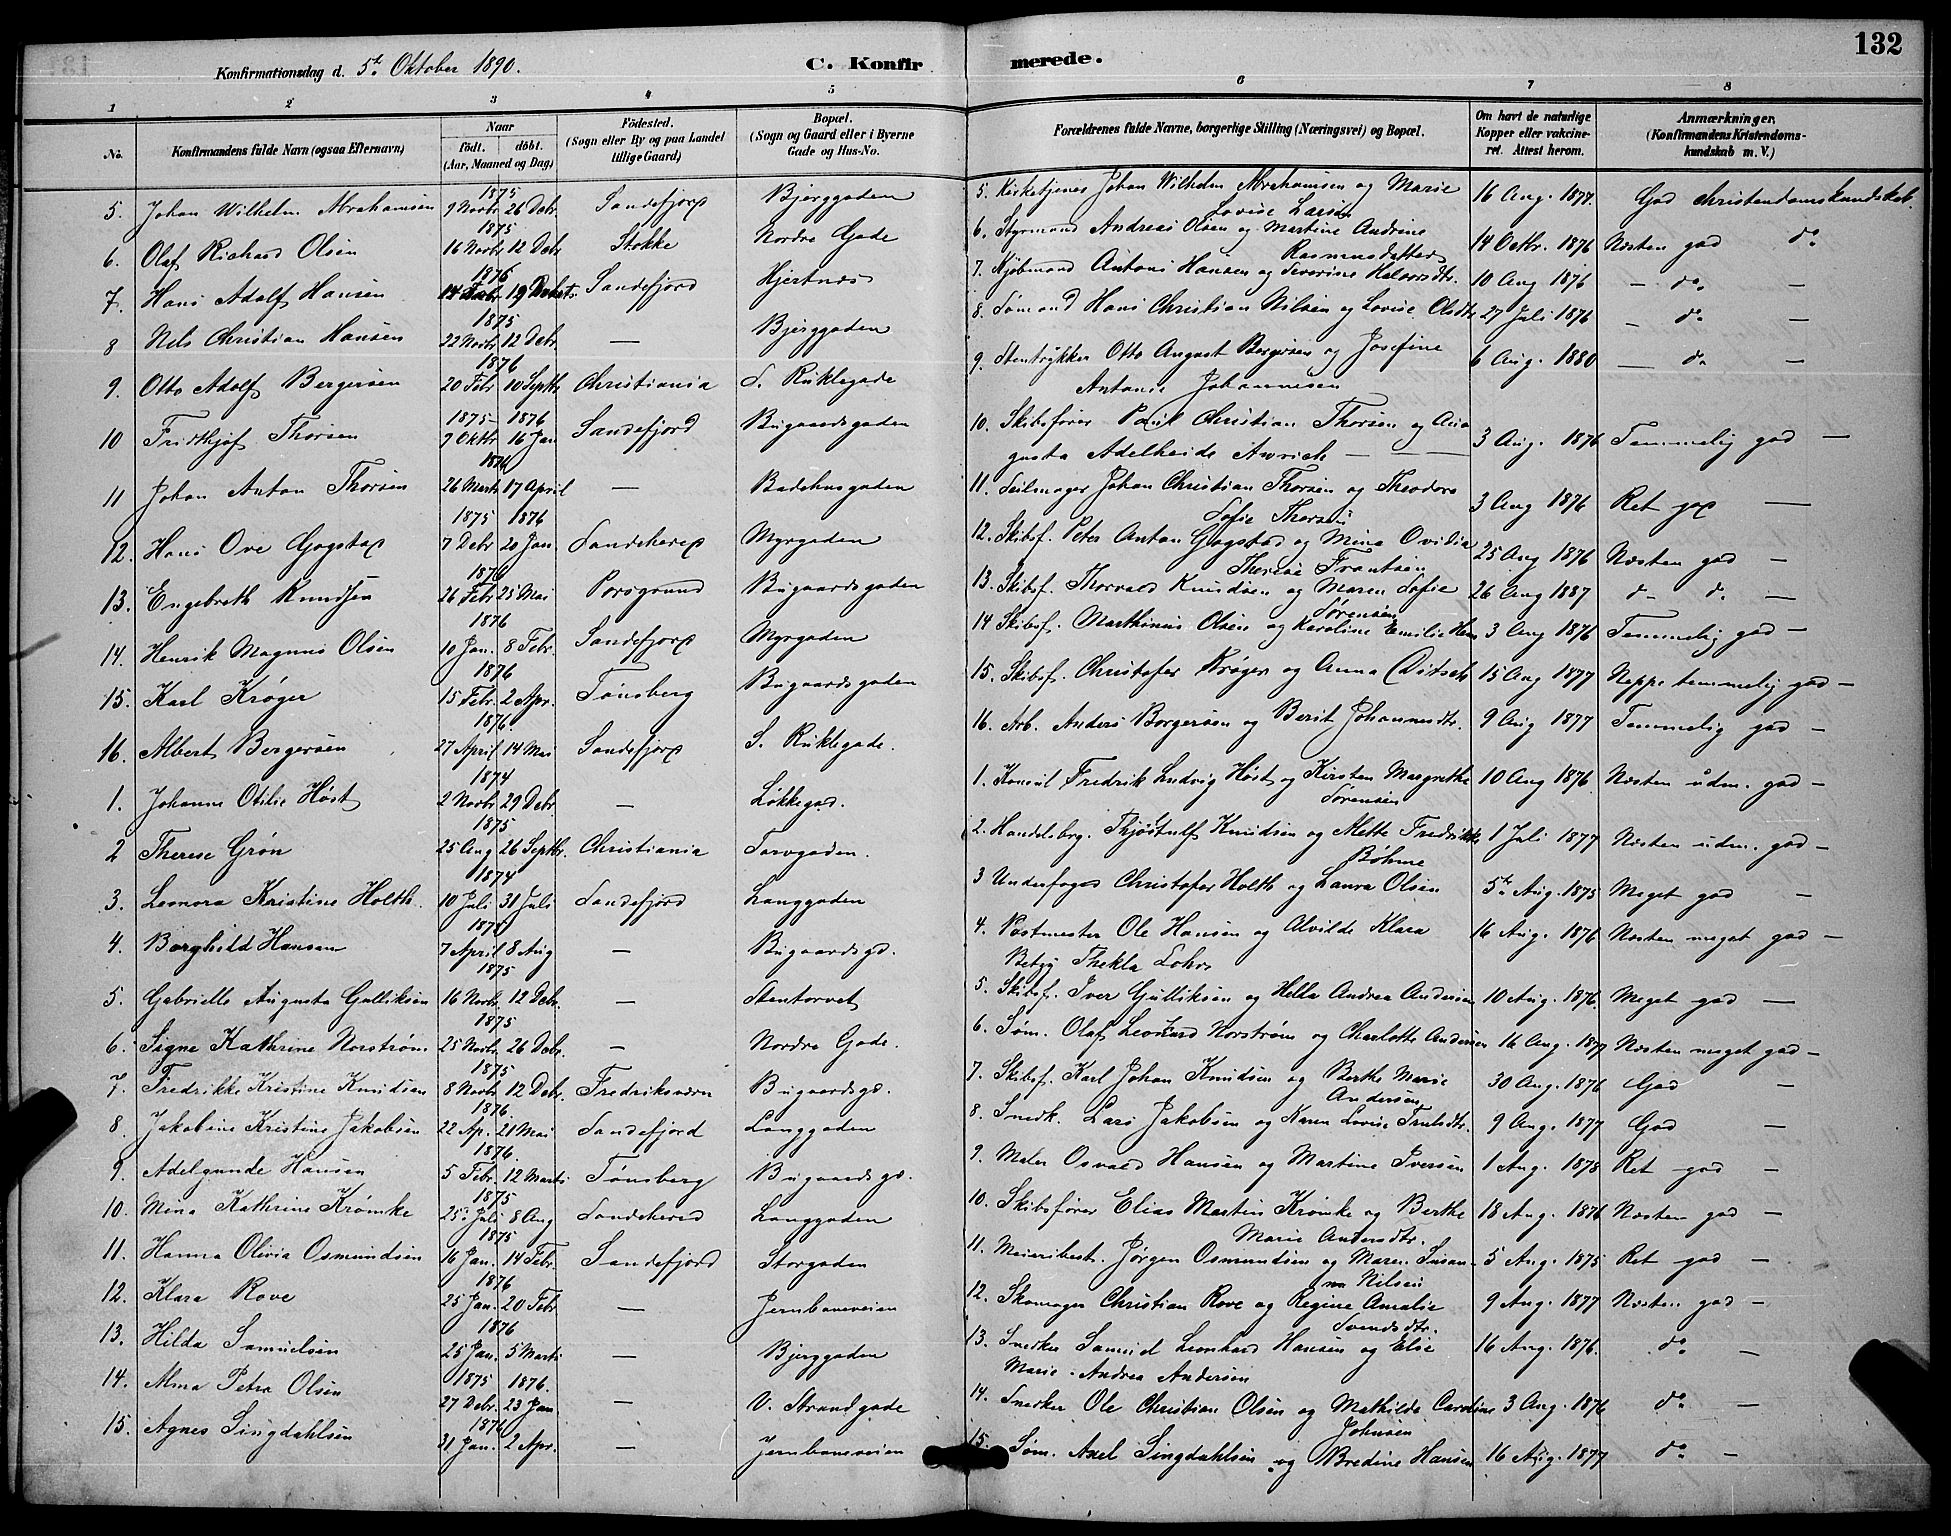 132
Konfirmationsdag d. 5te Oktober 1890. C. Konfirmerede.
1 2 3 4 5 6 7 8
No. Konfirmandens fulde Navn (ogsaa Efternavn) Naar født. døbt. (Aar, Maaned og Dag) Fødested. (Sogn eller By og paa Landet tillige Gaard) Bopæl. (Sogn og Gaard eller i Byerne Gade og Hus-No. Forældrenes fulde Navne, borgerlige Stilling (Næringsvei) og Bopæl. Om havt de naturlige Kopper eller vakcineret. Attest herom. Anmærkninger, (Konfirmandens Kristendomskundskab m. V.)
5. Johan Wilhelm Abrahamsen 1875 9 Novbr 26 Debr. Sandefjord Bjerggaden 5. Kirketjener Johan Wilhelm Abrahamsen og Marie Lovise Larsen 16 Aug. 1877. God christendomskundskab.
6. Olaf Richard Olsen 1875 16 Novbr 12 Debr Stokke Nordre Gade 6. Styrmand Andreas Olsen og Martine Andrine Rasmusdatter 14 Oktr. 1876 Næsten god do
7. Hans Adolf Hansen 1876 14 Febr. 19 Sandefjord Hjertnes 7. Kjøbmand Antoni Hansen og Severine Halvorsdtr. 10 Aug 1876 — do —
8 Nils Christian Hansen 1875 22 Novbr 12 Debr. — Bjerggaden 8. Sømand Hans Christian Nilsen og Lovise Olsdtr 27 Juli 1876 — do —
9. Otto Adolf Bergersen 1876 20 Febr 10 Septbr Christiania S. Ruklegade 9. Stentrykker Otto August Bergersen og Josefine Antonie Johannesen 6 Aug. 1880 — do —
10 Fridthjof Thorsen 1875 1876 7 Oktbr 16 Jan Sandefjord Bugaardsgaden 10. Skibsfører Paul Christian Thorsen og Augusta Adelheide — 3 Aug. 1876 Temmelig god —
11 Johan Anton Thorsen 1876 26 Marts 17 April — Badehusgaden 11. Seilmager Johan Christian Thorsen og Theodora Sofie Thorsen 3 Aug 1876 Ret god —
12. Hans Ove Gogstad 1875 1876 7 Debr 20 Jan. Sandeherred Myrgaden 12. Skibsf. Peter Anton Gogstad og Mina Ovilia Therese Frantsen 25 Aug 1876 Næsten god —
13. Engebreth Knudsen 1876 26 Febr 25 Mai Porsgrund Bugaardsgaden 13. Skibsf. Thorvald Knudsen og Maren Sofie Sørensen 26 Aug 1887 do do —
14. Henrik Magnus Olsen 1876 10 Jan. 8 Febr. Sandefjord Myrgaden 14 Skibsf. Marthinus Olsen og Karoline Emilie 3 Aug 1876 Temmelig god —
15. Karl Krøger 1876 15 Febr. 2 Apr. Tønsberg Bugaardsgaden 15. Skibsf. Christofer Krøger og Anna 15 Aug 1877 Neppe temmelig god —
16. Albert Bergersen 1876. 27 April 14 Mai Sandefjord S. Ruklegade. 16. Arb. Anders Borgersen og Berit Johannesdtr. 9 Aug 1877 Temmelig god —
1. Johanne Otilie Høst 1874 2 Novbr 29 Debr. — Løkkegad. 1. Konsul Fredrik Ludvig Høst og Kirsten Margrethe Sørensen 10 Aug 1876. Næsten udm. god —
2 Therese Grøn 1875 25 Aug 26 Septbr. Christiania Torvgaden. 2. Handelsbrg. Thjøstulf Knudsen og Mette Fredrikke Bøhme 1 Juli 1877 Næsten udm. god —
3. Leonora Kristine Holth. 1874 10 Juli 31 Juli Sandefjord Langgaden 3 Underfoged Christofer Holth og Laura Olsen 5te Aug. 1875 Meget god —
4. Borghild Hansen 1875 7 April 8 Aug — Bugaardsgd. 4. Postmester Ole Hansen og Alvilde Klara Betzy Thekla Lohr. 16 Aug. 1876 Næsten meget god —
5. Gabrielle Augusta Gulliksen 1875 16 Novbr. 12 Debr. — Stentorvet 5. Skibsf. Iver Gulliksen og Hilda Andrea Andersen 10 Aug. 1876. Meget god —
6. Signe Kathrine Norstrøm. 1875 25 Novbr. 26 Debr. — Nordre Gade. 6. Søm. Olaf Leonard Norstrøm og Charlotte Andersen 16 Aug. 1877 Næsten meget god —
7. Fredrikke Kristine Knudsen 1875 8 Novbr 12 Debr. Fredriksværn Bugaardsgd. 7. Skibsf. Karl Johan Knudsen og Berthe Marie Andersen 30 Aug. 1876 God —
8. Jakobine Kristine Jakobsen 1876. 22 Ap. 21 Mai Sandefjord Langgaden 8. Snedk. Lars Jakobsen og Karen Lovise Trulsdtr. 9 Aug. 1877 God —
9. Adelgunde Hansen 1876. 5 Febr. 12 Marts Tønsberg Bugaardsgd. 9. Maler Osvald Hansen og Martine Iversen 1 Aug. 1878 Ret god —
10. Mina Kathrine Krømke 1875 25 Juli 8 Aug Sandeherred Langgaden 10. Skibsfører Elias Martin Krømke og Berthe Marie Andersdtr. 18 Aug. 1876 Næsten god —
11. Hanna Olivia Osmundsen 1875 16 Jan. 14 Febr. Sandefjord Storgaden 11. Meieribest. Jørgen Osmundsen og Maren Susanna Nilsen 5 Aug. 1875 Ret god —
12. Klara Rove 1876 25 Jan. 20 Febr — Jernbaneveien 12. Skomager Christian Rove og Regine Amalie Svendsdtr. 9 Aug. 1877 Næsten god —
13. Hilda Samuelsen 1876 25 Jan. 5 Marts — Bjerggaden 13. Snedker Samuel Leonhard Hansen og Else Marie Andrea Andersen 16 Aug. 1876. do —
14. Alma Petra Olsen 1875 1876. 27 Debr. 23 Jan. — V. Strandgade 14. Snedker Ole Christian Olsen og Mathilde Caroline Johnsen 3 Aug. 1876 do —
15. Agnes Lingdahlsen 1876 31 Jan. 2 Apr. — Jernbaneveien 15. Søm. Axel Lingdahlsen og Bredine Hansen 16 Aug. 1877 do —